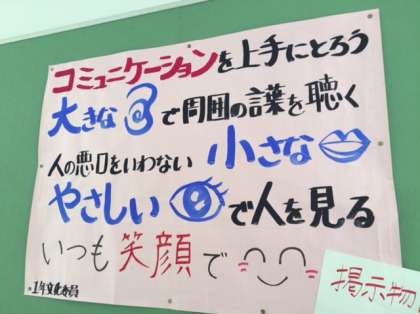 コミュニケーションを上手にとろう
大きな で周囲の言葉を聴く
人の悪口をいわない 小さな
やさしい で人を見る
いつも笑顔で
*1年文化委員
掲示物